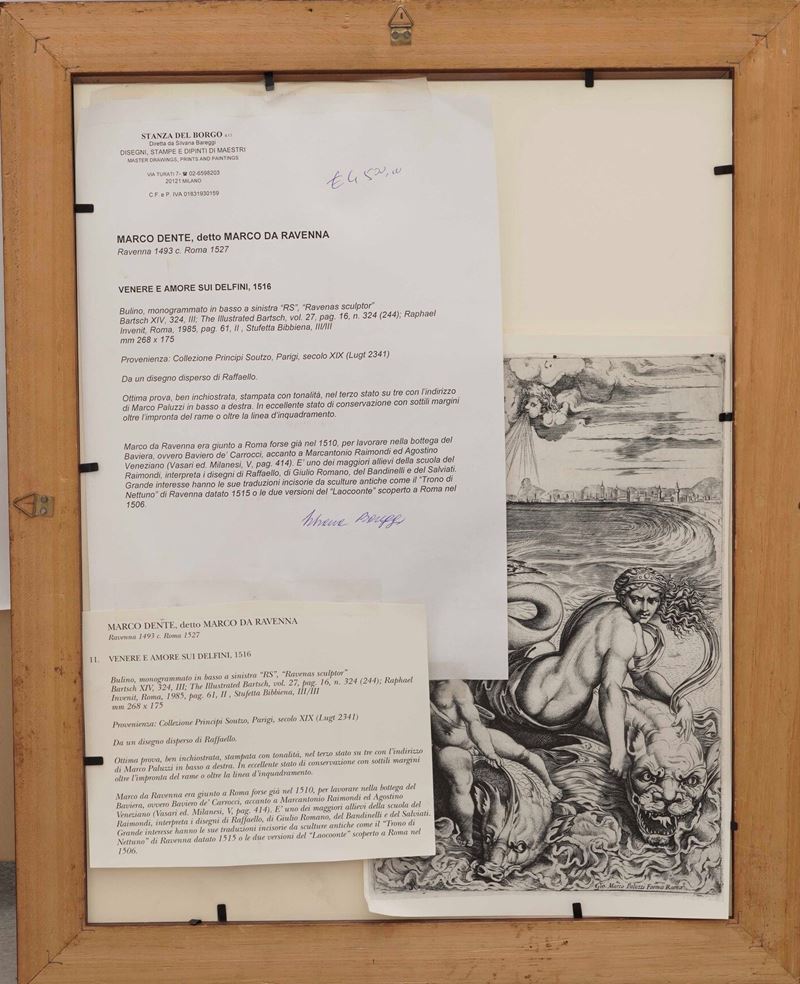 STANZA DEL BORGO s.r.l.
Diretta da Silvana Bareggi
DISEGNI, STAMPE E DIPINTI DI MAESTRI
MASTER DRAWINGS, PRINTS AND PAINTINGS
VIA TURATI 7- ☎ 02-6598203
20121 MILANO
C.F. e P. IVA 01831930159
€ 4.500,00
MARCO DENTE, detto MARCO DA RAVENNA
Ravenna 1493 c. Roma 1527
VENERE E AMORE SUI DELFINI, 1516
Bulino, monogrammato in basso a sinistra “RS”, “Ravenas sculptor”
Bartsch XIV, 324, III; The Illustrated Bartsch, vol. 27, pag. 16, n. 324 (244); Raphael
Invenit, Roma, 1985, pag. 61, II , Stufetta Bibbiena, III/III
mm 268 x 175
Provenienza: Collezione Principi Soutzo, Parigi, secolo XIX (Lugt 2341)
Da un disegno disperso di Raffaello.
Ottima prova, ben inchiostrata, stampata con tonalità, nel terzo stato su tre con l’indirizzo
di Marco Paluzzi in basso a destra. In eccellente stato di conservazione con sottili margini
oltre l’impronta del rame o oltre la linea d’inquadramento.
Marco da Ravenna era giunto a Roma forse già nel 1510, per lavorare nella bottega del
Baviera, ovvero Baviero de’ Carrocci, accanto a Marcantonio Raimondi ed Agostino
Veneziano (Vasari ed. Milanesi, V, pag. 414). E’ uno dei maggiori allievi della scuola del
Raimondi, interpreta i disegni di Raffaello, di Giulio Romano, del Bandinelli e del Salviati.
Grande interesse hanno le sue traduzioni incisorie da sculture antiche come il “Trono di
Nettuno” di Ravenna datato 1515 o le due versioni del “Laocoonte” scoperto a Roma nel
1506.
Silvana Bareggi
MARCO DENTE, detto MARCO DA RAVENNA
Ravenna 1493 c. Roma 1527
11. VENERE E AMORE SUI DELFINI, 1516
Bulino, monogrammato in basso a sinistra “RS”, “Ravenas sculptor”
Bartsch XIV, 324, III; The Illustrated Bartsch, vol. 27, pag. 16, n. 324 (244); Raphael
Invenit, Roma, 1985, pag. 61, II , Stufetta Bibbiena, III/III
mm 268 x 175
Provenienza: Collezione Principi Soutzo, Parigi, secolo XIX (Lugt 2341)
Da un disegno disperso di Raffaello.
Ottima prova, ben inchiostrata, stampata con tonalità, nel terzo stato su tre con l’indirizzo
di Marco Paluzzi in basso a destra. In eccellente stato di conservazione con sottili margini
oltre l’impronta del rame o oltre la linea d’inquadramento.
Marco da Ravenna era giunto a Roma forse già nel 1510, per lavorare nella bottega del
Baviera, ovvero Baviero de’ Carrocci, accanto a Marcantonio Raimondi ed Agostino
Veneziano (Vasari ed. Milanesi, V, pag. 414). E’ uno dei maggiori allievi della scuola del
Raimondi, interpreta i disegni di Raffaello, di Giulio Romano, del Bandinelli e del Salviati.
Grande interesse hanno le sue traduzioni incisorie da sculture antiche come il “Trono di
Nettuno” di Ravenna datato 1515 o le due versioni del “Laocoonte” scoperto a Roma nel
1506.
Gio. Marco Paluzzi Formis Romæ